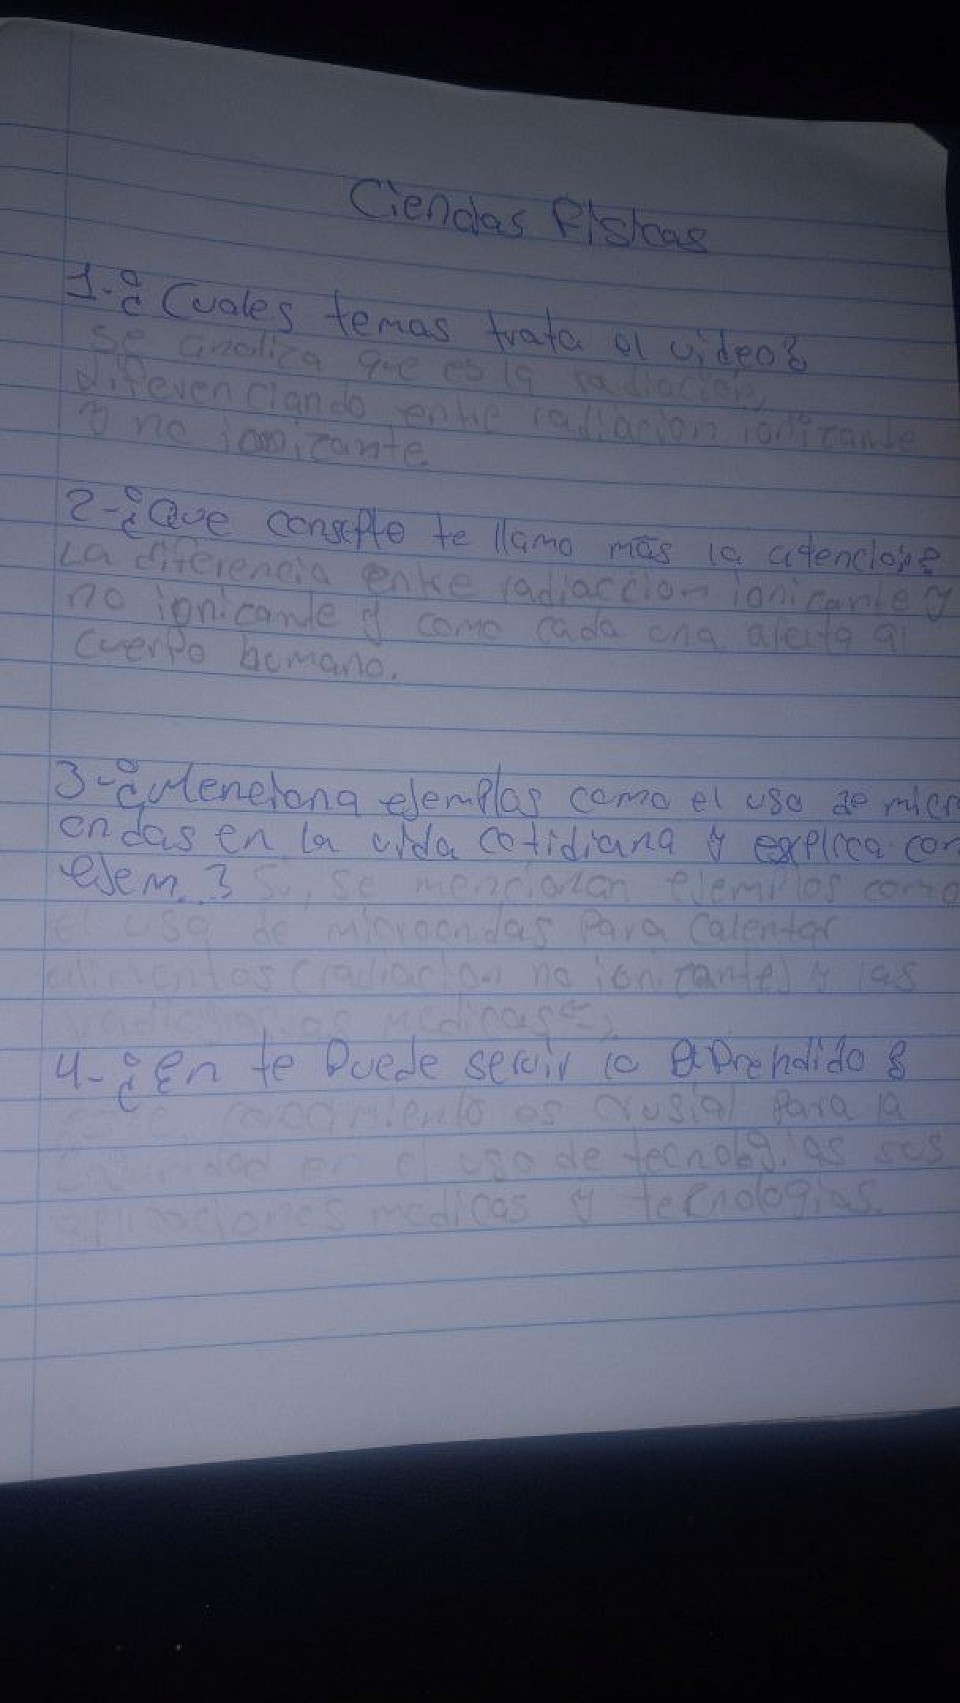 Ciencias Físicas
1-¿Cuales temas trata el video?
Se analiza que es la radiación,
diferenciando entre radiacion ionizante
y no ionizante
2-¿Que consepto te llamo más la atencion?
La diferencia entre radiaccion ionicante y
no ionicante y como cada una afecta al
cuerpo humano.
3-¿Menciona ejemplos como el uso de micr
ondas en la vida cotidiana y explica con
ejem. 3 Si, se mencionan ejemplos como
el uso de microondas Para calentar
alimentos (radiacion no ionizante) y las
radiografias medicas
4-¿En te Puede servir lo aprendido?
Este conocimiento es crusial Para la
seguridad en el uso de tecnologias sus
aplicaciones medicas y tecnologias.